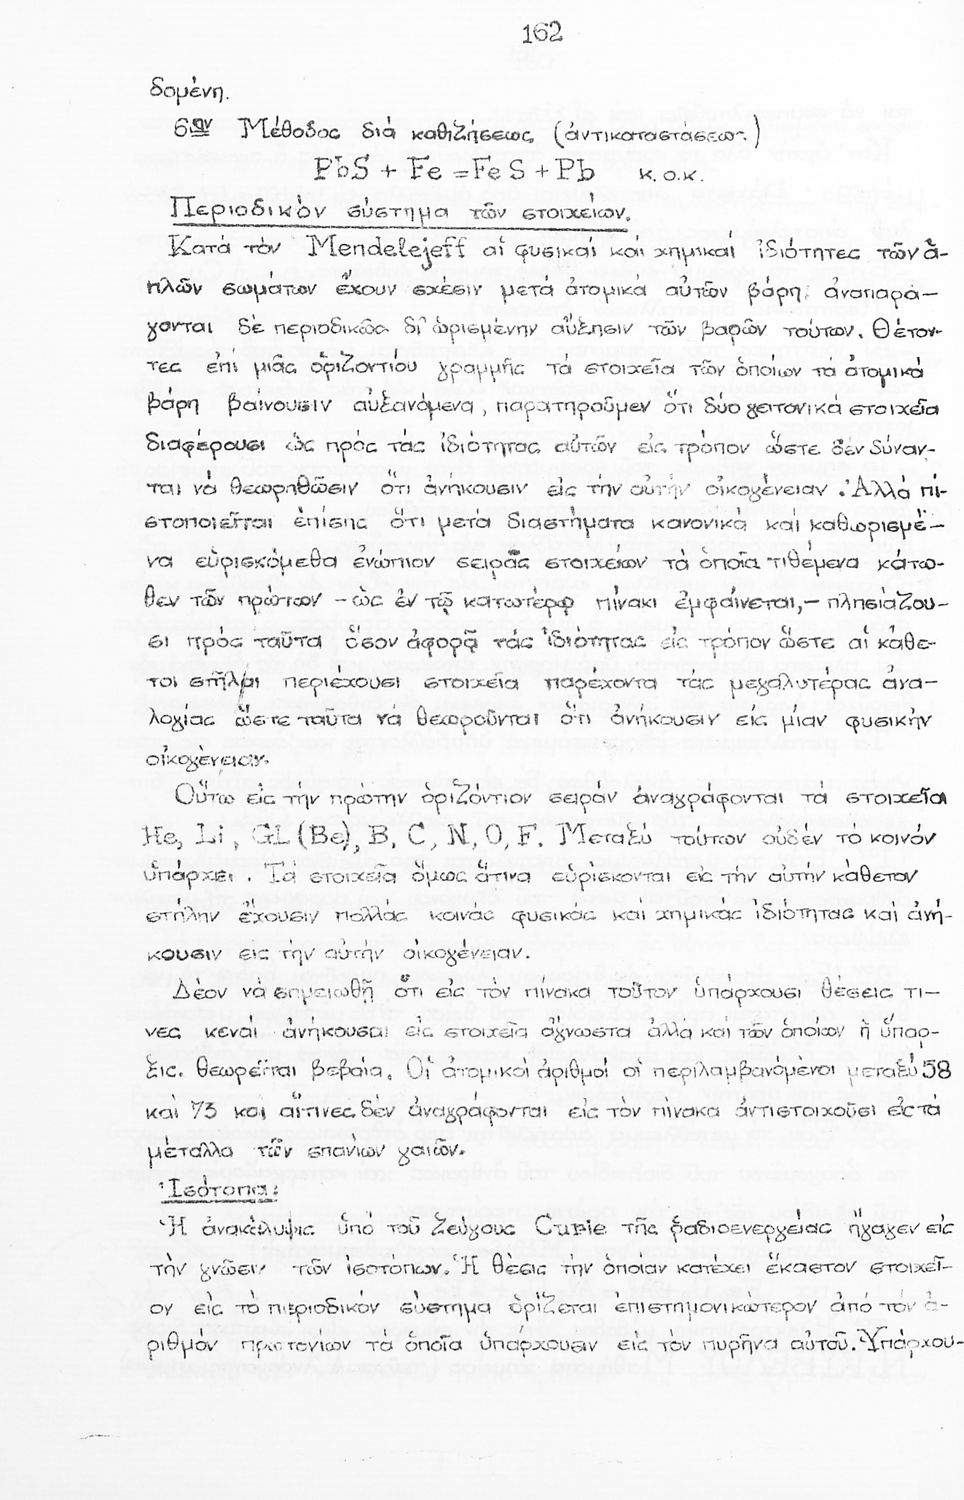 162
δομένη.
6ον Μέθοδος διά καθιζήσεως (ἀντικαταστάσεως)
PbS + Fe = FeS + Pb κ.ο.κ.
Περιοδικὸν σύστημα τῶν στοιχείων.
Κατά τὸν Mendelejeff αἱ φυσικαί καί χημικαί ἰδιότητες τῶν ἁ-
πλῶν σωμάτων ἔχουν σχέσιν μετά ἀτομικά αὐτῶν βάρη, ἀναπαρά-
γονται δέ περιοδικῶς δι' ὡρισμένην αὔξησιν τῶν βαρῶν τούτων. Θέτον-
τες ἐπί μιᾶς ὁριζοντίου γραμμῆς τά στοιχεῖα τῶν ὁποίων τά ἀτομικά
βάρη βαίνουσιν αὐξανόμενα, παρατηροῦμεν ὅτι δύο γειτονικά στοιχεῖα
διαφέρουσι ὡς πρός τάς ἰδιότητας αὐτῶν εἰς τρόπον ὥστε δέν δύναν-
ται νά θεωρηθῶσιν ὅτι ἀνήκουσιν εἰς τήν αὐτήν οἰκογένειαν. Ἀλλά πι-
στοποιεῖται ἐπίσης ὅτι μετά διαστήματα κανονικά καί καθωρισμέ-
να εὑρισκόμεθα ἐνώπιον σειρᾶς στοιχείων τά ὁποῖα τιθέμενα κάτω-
θεν τῶν πρώτων - ὡς ἐν τῷ κατωτέρῳ πίνακι ἐμφαίνεται, - πλησιάζου-
σι πρός ταῦτα ὅσον ἀφορᾷ τάς ἰδιότητας εἰς τρόπον ὥστε αἱ κάθε-
τοι στῆλαι περιέχουσι στοιχεῖα παρέχοντα τάς μεγαλυτέρας ἀνα-
λογίας ὥστε ταῦτα νά θεωροῦνται ὅτι ἀνήκουσιν εἰς μίαν φυσικήν
οἰκογένειαν.
Οὕτω εἰς τήν πρώτην ὁριζόντιον σειράν ἀναγράφονται τά στοιχεῖα
He, Li, GL (Be), B, C, N, O, F. Μεταξύ τούτων οὐδέν το κοινόν
ὑπάρχει. Τά στοιχεῖα ὅμως ἅτινα εὑρίσκονται εἰς τήν αὐτήν κάθετον
στήλην ἔχουσιν πολλάς κοινάς φυσικάς καί χημικάς ἰδιότητας καί ἀνή-
κουσιν εἰς τήν αὐτήν οἰκογένειαν.
Δέον νά σημειωθῇ ὅτι εἰς τόν πίνακα τοῦτον ὑπάρχουσι θέσεις τι-
νες κεναί ἀνήκουσαι εἰς στοιχεῖα ἄγνωστα ἀλλά καί τῶν ὁποίων ἡ ὕπαρ-
ξις θεωρεῖται βεβαία. Οἱ ἀτομικοί ἀριθμοί οἱ περιλαμβανόμενοι μεταξύ 58
καί 73 καί αἵτινες δέν ἀναγράφονται εἰς τὸν πίνακα ἀντιστοιχοῦσι εἰς τά
μέταλλα τῶν σπανίων γαιῶν.
Ἰσότοπα:
Ἡ ἀνακάλυψις ὑπό τοῦ ζεύγους Curie τῆς ραδιοενεργείας ἤγαγεν εἰς
τὴν γνῶσιν τῶν ἰσοτόπων. Ἡ θέσις τήν ὁποίαν κατέχει ἕκαστον στοιχεῖ-
ον εἰς τό περιοδικόν σύστημα ὁρίζεται ἐπιστημονικώτερον ἀπό τόν ἀ-
ριθμόν πρωτονίων τά ὁποῖα ὑπάρχουσιν εἰς τόν πυρῆνα αὐτοῦ. Ὑπάρχου-